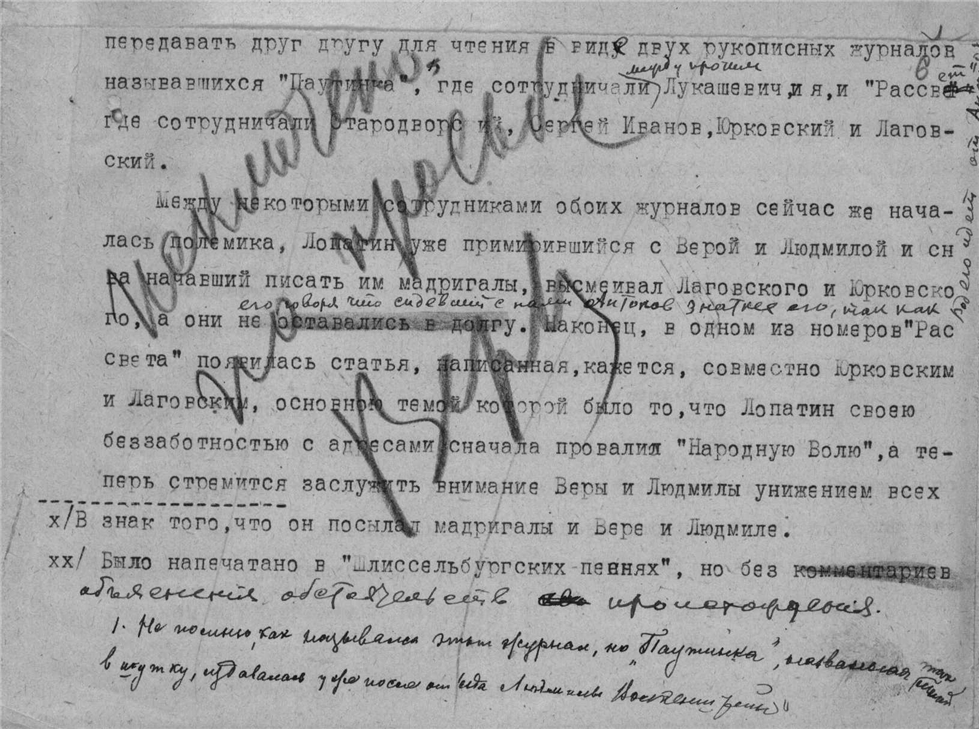 передавать друг другу для чтения в виде двух рукописных журналов
называвшихся "Паутинка", где сотрудничали между прочим Лукашевич, и я, и "Рассвет"
где сотрудничали Стародворский, Сергей Иванов, Юрковский и Лагов-
ский.
Между некоторыми сотрудниками обоих журналов сейчас же нача-
лась полемика, Лопатин уже примирившийся с Верой и Людмилой и сн
ва начавший писать им мадригалы, высмеивал Лаговского и Юрковско
его говоря что сидевший с нами Антонов знатнее его, так как
го, а они не оставались в долгу. Наконец, в одном из номеров "Рас
света" появилась статья, написанная, кажется, совместно Юрковским
и Лаговским, основною темой которой было то, что Лопатин своею
беззаботностью с адресами сначала провалил "Народную Волю", а те-
перь стремится заслужить внимание Веры и Людмилы унижением всех
х/ В знак того, что он посылал мадригалы и Вере и Людмиле.
хх/ Было напечатано в "Шлиссельбургских песнях", но без комментариев
объяснения обстоятельств происхождения.
1. Не помню, как назывался этот журнал, но "Паутинка", названная так
в шутку, издавалась уже после отъезда Людмилы
по просьбе
Веры